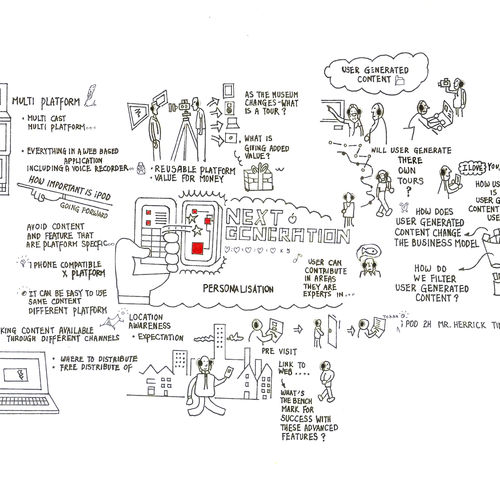 MULTI PLATFORM
• MULTI CAST
MULTI PLATFORM...
• EVERYTHING IN A WEB BASED
APPLICATION
INCLUDING A VOICE RECORDER...
HOW IMPORTANT IS iPOD
GOING FORWARD
AVOID CONTENT
AND FEATURE THAT
ARE PLATFORM SPECIFIC...
• I PHONE COMPATIBLE
X PLATFORM
• IT CAN BE EASY TO USE
SAME CONTENT
DIFFERENT PLATFORM
KING CONTENT AVAILABLE
THROUGH DIFFERENT CHANNELS
• WHERE TO DISTRIBUTE
• FREE DISTRIBUTE OF
• REUSABLE PLATFORM
VALUE FOR MONEY
AS THE MUSEUM
CHANGES - WHAT
IS A TOUR?
WHAT IS
GIVING ADDED
VALUE?
NEXT
GENERATION
x 5
PERSONALISATION
LOCATION
AWARENESS
• EXPECTATION
USER CAN
CONTRIBUTE
IN AREAS
THEY ARE
EXPERTS IN...
PRE VISIT
LINK TO
WEB....
& WHAT'S
THE BENCH
MARK FOR
SUCCESS WITH
THESE ADVANCED
FEATURES?
USER GENERATED
CONTENT
WILL USER GENERATE
THERE
OWN
TOURS?
I LOVE YOU.
HOW US
IS
USER G
CONTENT
USE
HOW DOES
USER GENERATED
CONTENT CHANGE
THE BUSINESS MODEL
HOW DO
WE FILTER
USER GENERATED
CONTENT?
iPOD 2H MR. HERRICK TO